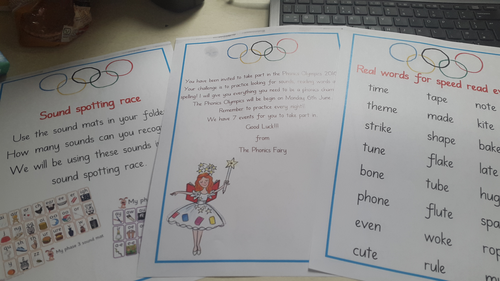 Sound spotting race
Use the sound mats in your folde
How many sounds can you recog
We will be using these sounds
sound spotting race.
My phase 3 sound mat
My ph
You have been invited to take part in the Phonics Olympics
Your challenge is to practice looking for sounds, reading words
spelling! I will give you everything you need to be a phonics
The Phonics Olympics will be begin on Monday 15th June.
Remember to practice every night!
We have 7 events for you to take part in.
Good Luck!!!
from
The Phonics Fairy
Real words for speed read ev
time tape note
theme made kite
strike shape bake
tune flake late
bone tube hug
phone flute spa
even woke rop
cute rule